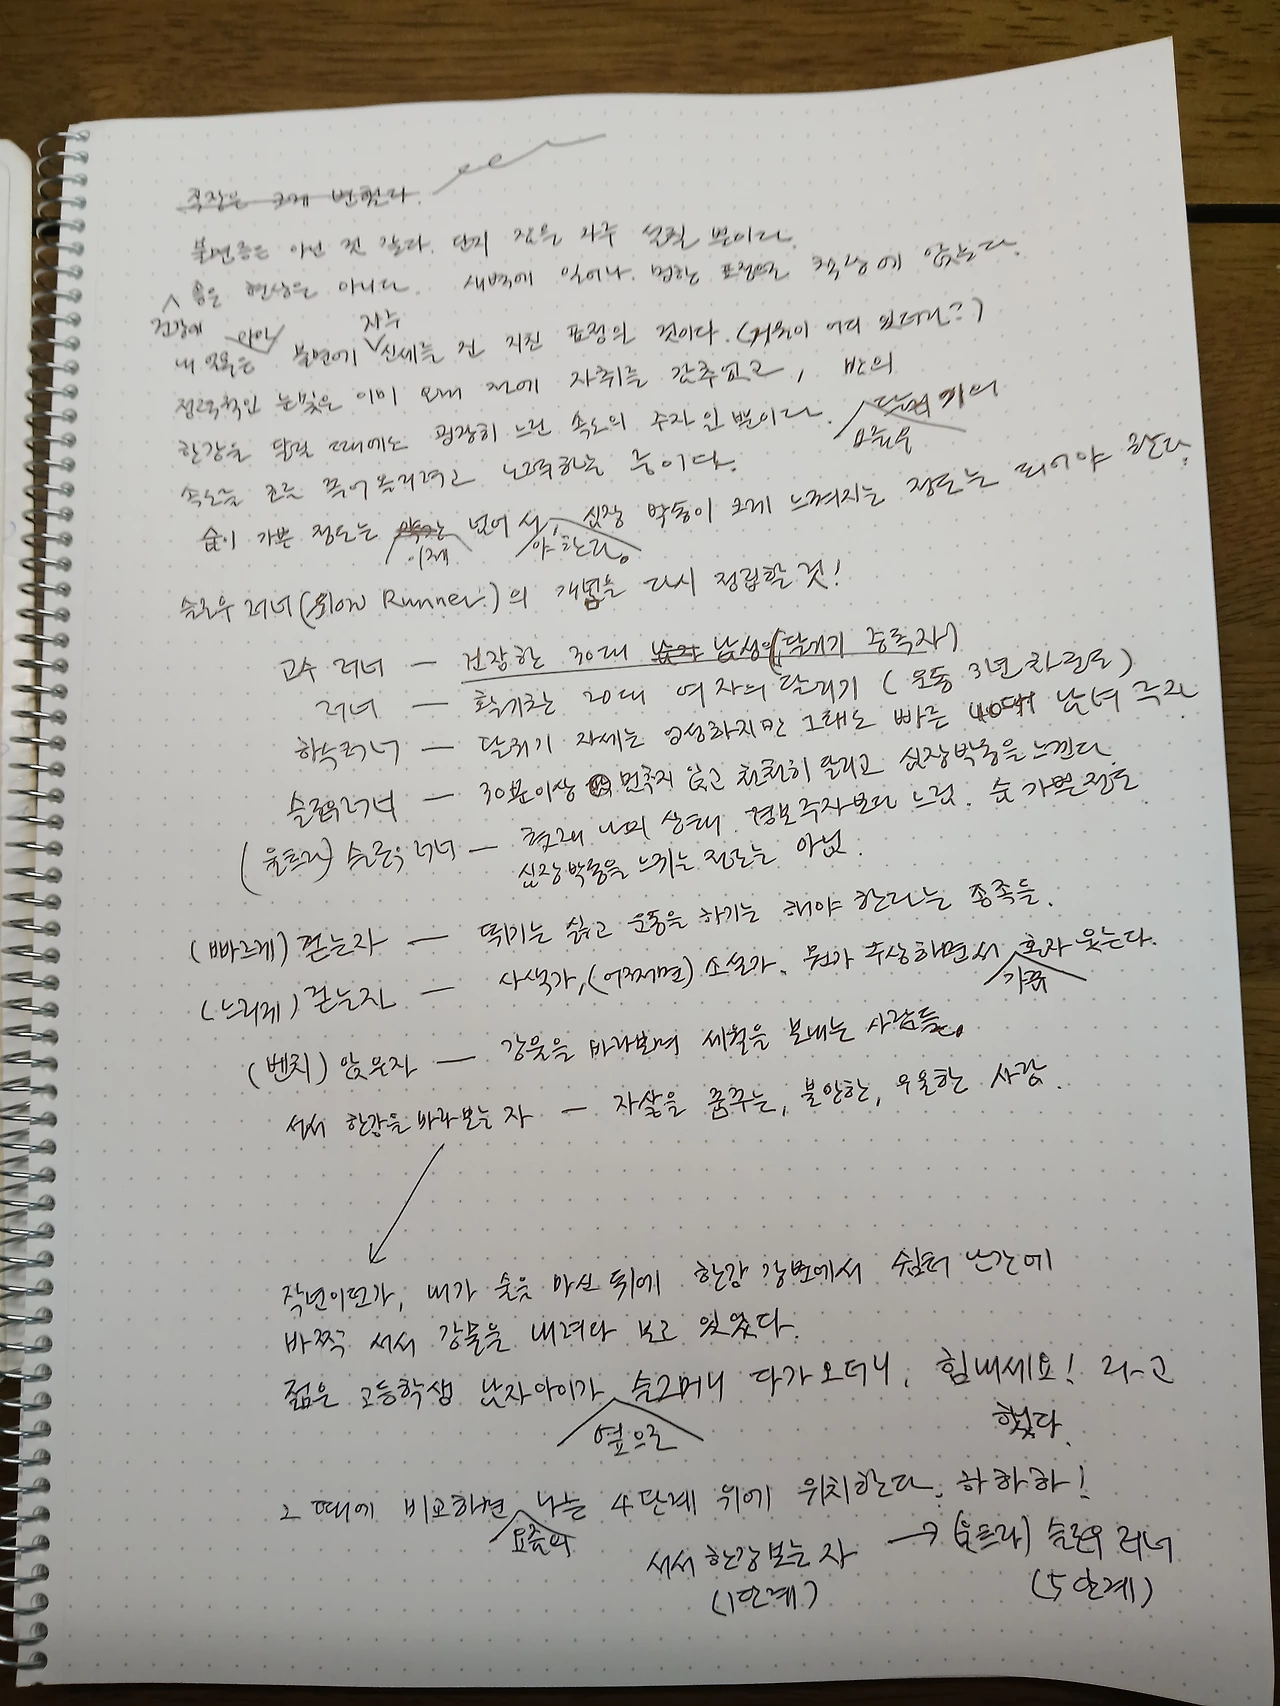 불면증은 아닌 것 같다. 단지 잠을 자주 설칠 뿐이다.
건강에 좋은 현상은 아니다. 새벽에 일어나 멍한 표정으로 책상에 앉는다.
내 얼굴은 불면에 자주 신세를 진 지친 표정의 것이다. (거울이 어디 있더라?)
정력적인 눈빛은 이미 오래 전에 자취를 감추었고, 밤의
한강을 달릴 때에도 굉장히 느린 속도의 주자인 뿐이다. 요즘은 달리기의
속도를 조금 끌어 올리려고 노력하는 중이다.
숨이 가쁜 정도는 이제 넘어서야 한다. 심장 박동이 크게 느껴지는 정도는 되어야 한다.
슬로우 러너(Slow Runner)의 개념을 다시 정립할 것!
고수 러너 — 건장한 30대 남성의 (달리기 중독자)
러너 — 활기찬 20대 여자의 달리기 (운동 3년차 정도)
하수러너 — 달리기 자세는 엉성하지만 그래도 빠른 40대 남녀 주자
슬로우러너 — 30분이상 멈추지 않고 천천히 달리고 심장박동을 느낀다.
(울트라) 슬로우 러너 — 현재 나의 상태. 경보주자보다 느림. 숨 가쁜 정도
심장박동을 느끼는 정도는 아님.
(빠르게) 걷는자 — 뛰기는 싫고 운동을 하기는 해야 한다는 종족들.
(느리게) 걷는자 — 사색가, (어쩌면) 소설가. 뭔가 추상하면서 가끔 혼자 웃는다.
(벤치) 앉은자 — 강물을 바라보며 세월을 보내는 사람들.
서서 한강을 바라보는 자 — 자살을 꿈꾸는, 불안한, 우울한 사람.
작년이던가, 내가 술을 마신 뒤에 한강 강변에서 쉼터 난간에
바짝 서서 강물을 내려다 보고 있었다.
젊은 고등학생 남자아이가 옆으로 슬그머니 다가오더니, 힘내세요! 라고
했다.
그 때에 비교하면 요즘의 나는 4단계 위에 위치한다. 하하하!
서서 한강 보는 자 → (울트라) 슬로우 러너
(1단계) (5단계)